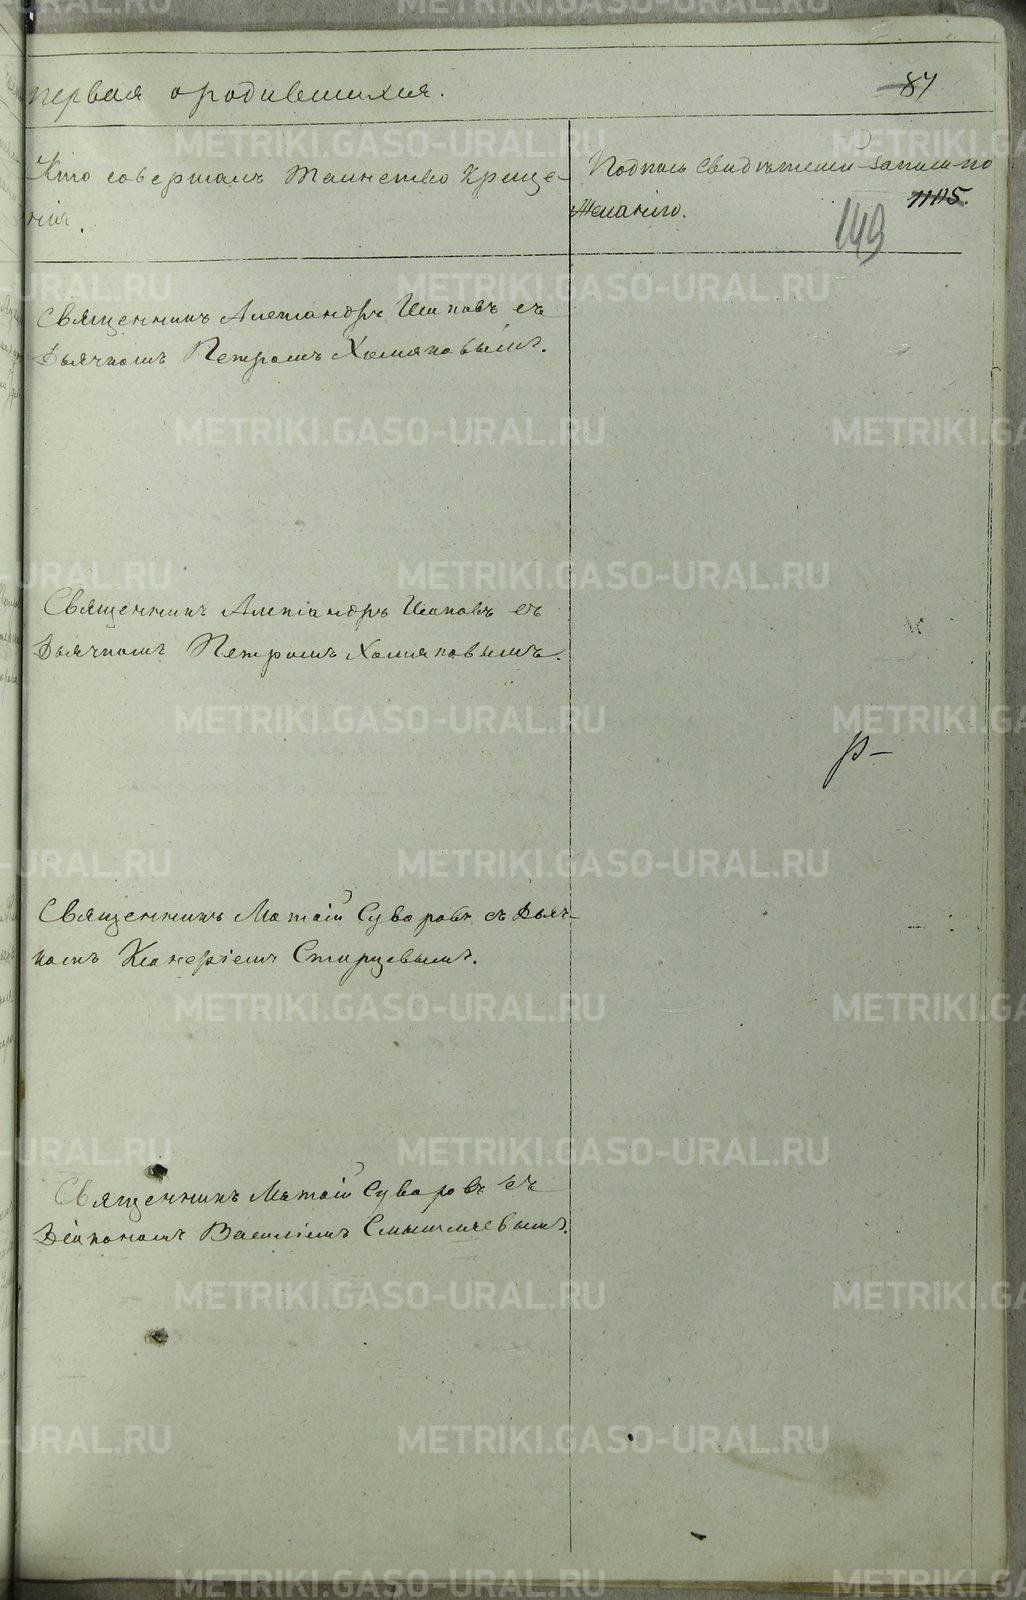 первая о родившихся.
87
Кто совершалъ Таинство Креще-
нія.
Подпись свидѣтелей записи по
желанію.
1105.
149
Священникъ Александръ Иоповъ съ
Дьячкомъ Петромъ Хомяковымъ.
Священникъ Александръ Иоповъ съ
Дьячкомъ Петромъ Хомяковымъ.
Священникъ Матѳій Суворовъ съ Дьяч-
комъ Валеріемъ Старцевымъ.
Священникъ Матѳій Суворовъ съ
Діакономъ Василіемъ Смышляевымъ.
METRIKI.GASO-URAL.RU